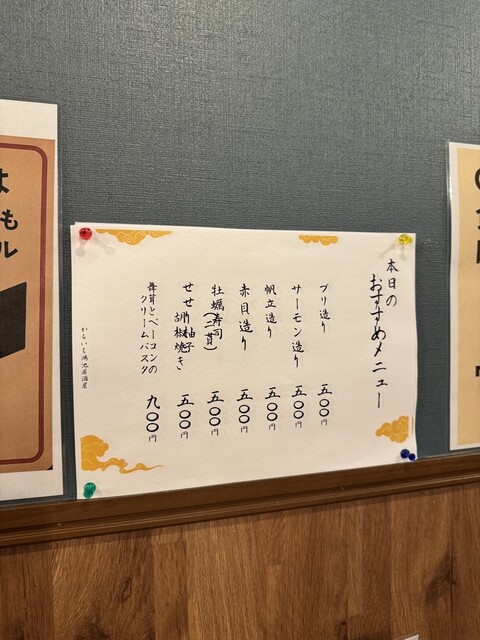 本日の
おすすめメニュー
ブリ造り 五〇〇円
サーモン造り 五〇〇円
帆立造り 五〇〇円
赤貝造り 五〇〇円
牡蠣寿司(二貫) 五〇〇円
せせり柚子
胡椒焼き 五〇〇円
舞茸とベーコンの
クリームパスタ 九〇〇円
からいち鴻池居酒屋
は
も
ル